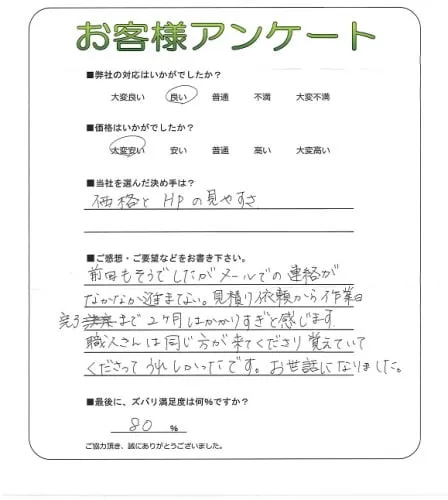 お客様アンケート
■弊社の対応はいかがでしたか？
大変良い 良い 普通 不満 大変不満
■価格はいかがでしたか？
大変安い 安い 普通 高い 大変高い
■当社を選んだ決め手は？
価格と HPの見やすさ
■ご感想・ご要望などをお書き下さい。
前回もそうでしたがメールでの連絡が
なかなか進まない。見積り依頼から作業日
完了まで2ヶ月はかかりすぎと感じます
職人さんは同じ方が来てくださり覚えていて
くださってうれしかったです。お世話になりました。
■最後に、ズバリ満足度は何%ですか？
80 %
ご協力頂き、誠にありがとうございました。